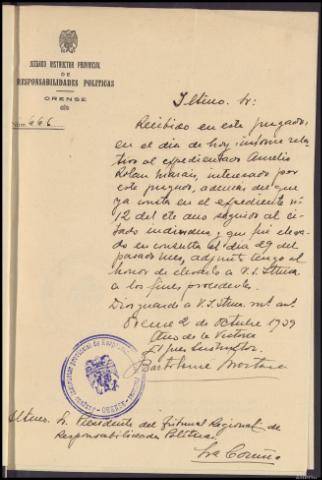 JUZGADO INSTRUCTOR PROVINCIAL
DE
RESPONSABILIDADES POLITICAS
ORENSE
Núm. 666
Iltmo. Sr:
Recibido en este juzgado,
en el dia de hoy, informe rela-
tivo al expedientado Aurelio
Rolan Marais, interesado por
este juzgado, además del que
ya consta en el expediente nº
12 del cte año seguido al ci-
tado individuo, y que fue eleva-
do en consulta el dia 29 del
pasado mes, adjunto tengo el
honor de elevarlo a V.S. Iltma
a los fines procedentes.
Dios guarde a V.S. Iltma. m. a.
Orense 2 de octubre 1939
Año de la Victoria
El Juez Instructor
Bartolomé
Iltmo. Sr. Presidente del Tribunal Regional de
Responsabilidades Políticas
La Coruña